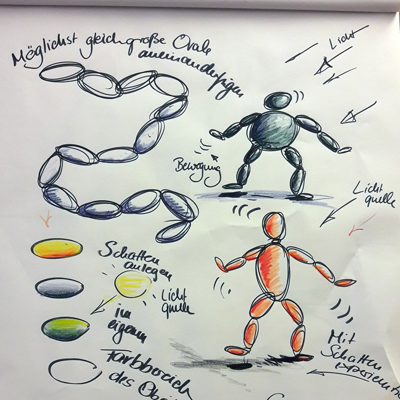 Möglichst gleichgroße Ovale
aneinanderfügen
Licht
Bewegung
Licht
quelle
Schatten
anlegen
Licht
quelle
im
eigenen
Farbbereich
des
Mit
Schatten